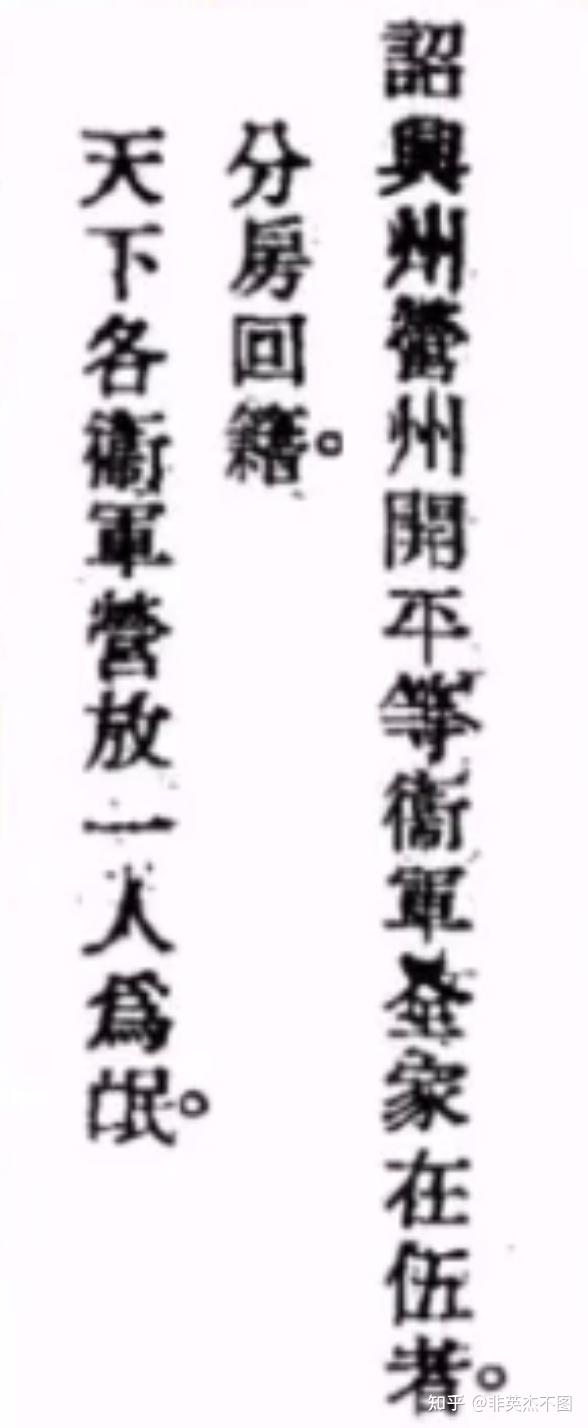 詔興州營州開平等衞軍全家在伍者。
分房回籍。
天下各衞軍營放一人爲氓。
知乎 @非英杰不图